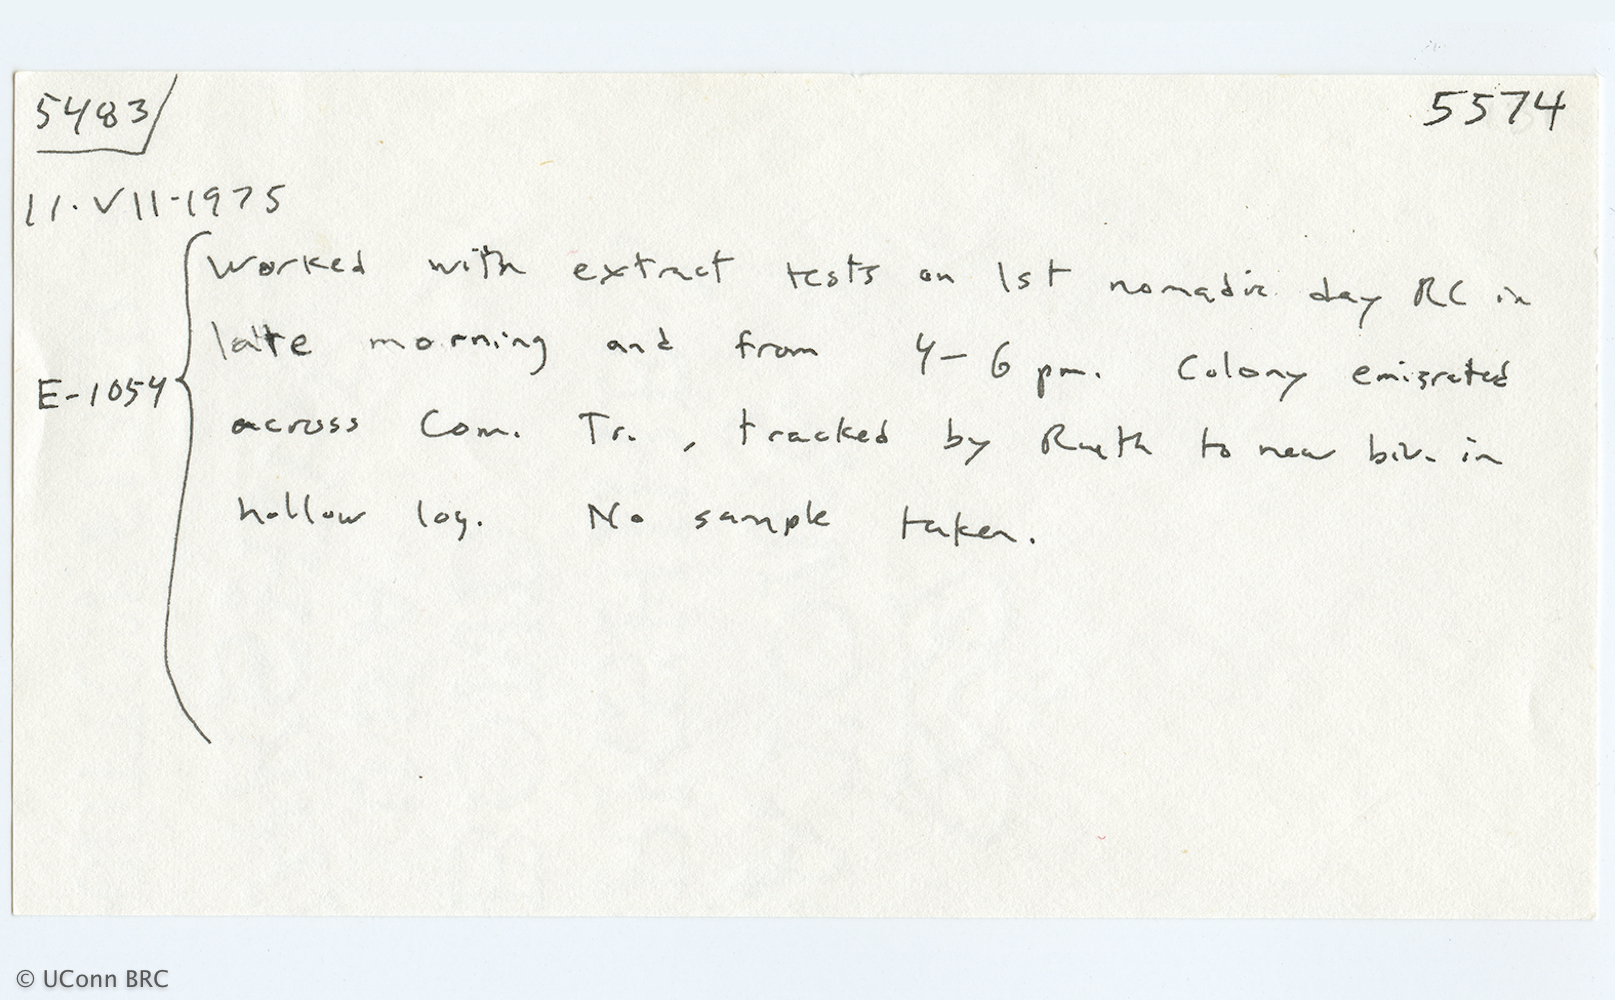 5483 5574
11.VII-1975
Worked with extract tests on 1st nomadic day RC in
late morning and from 4-6 pm. Colony emigrated
E-1054
across Com. Tr., tracked by Rueth to new biv. in
hollow log. No sample taken.
© UConn BRC